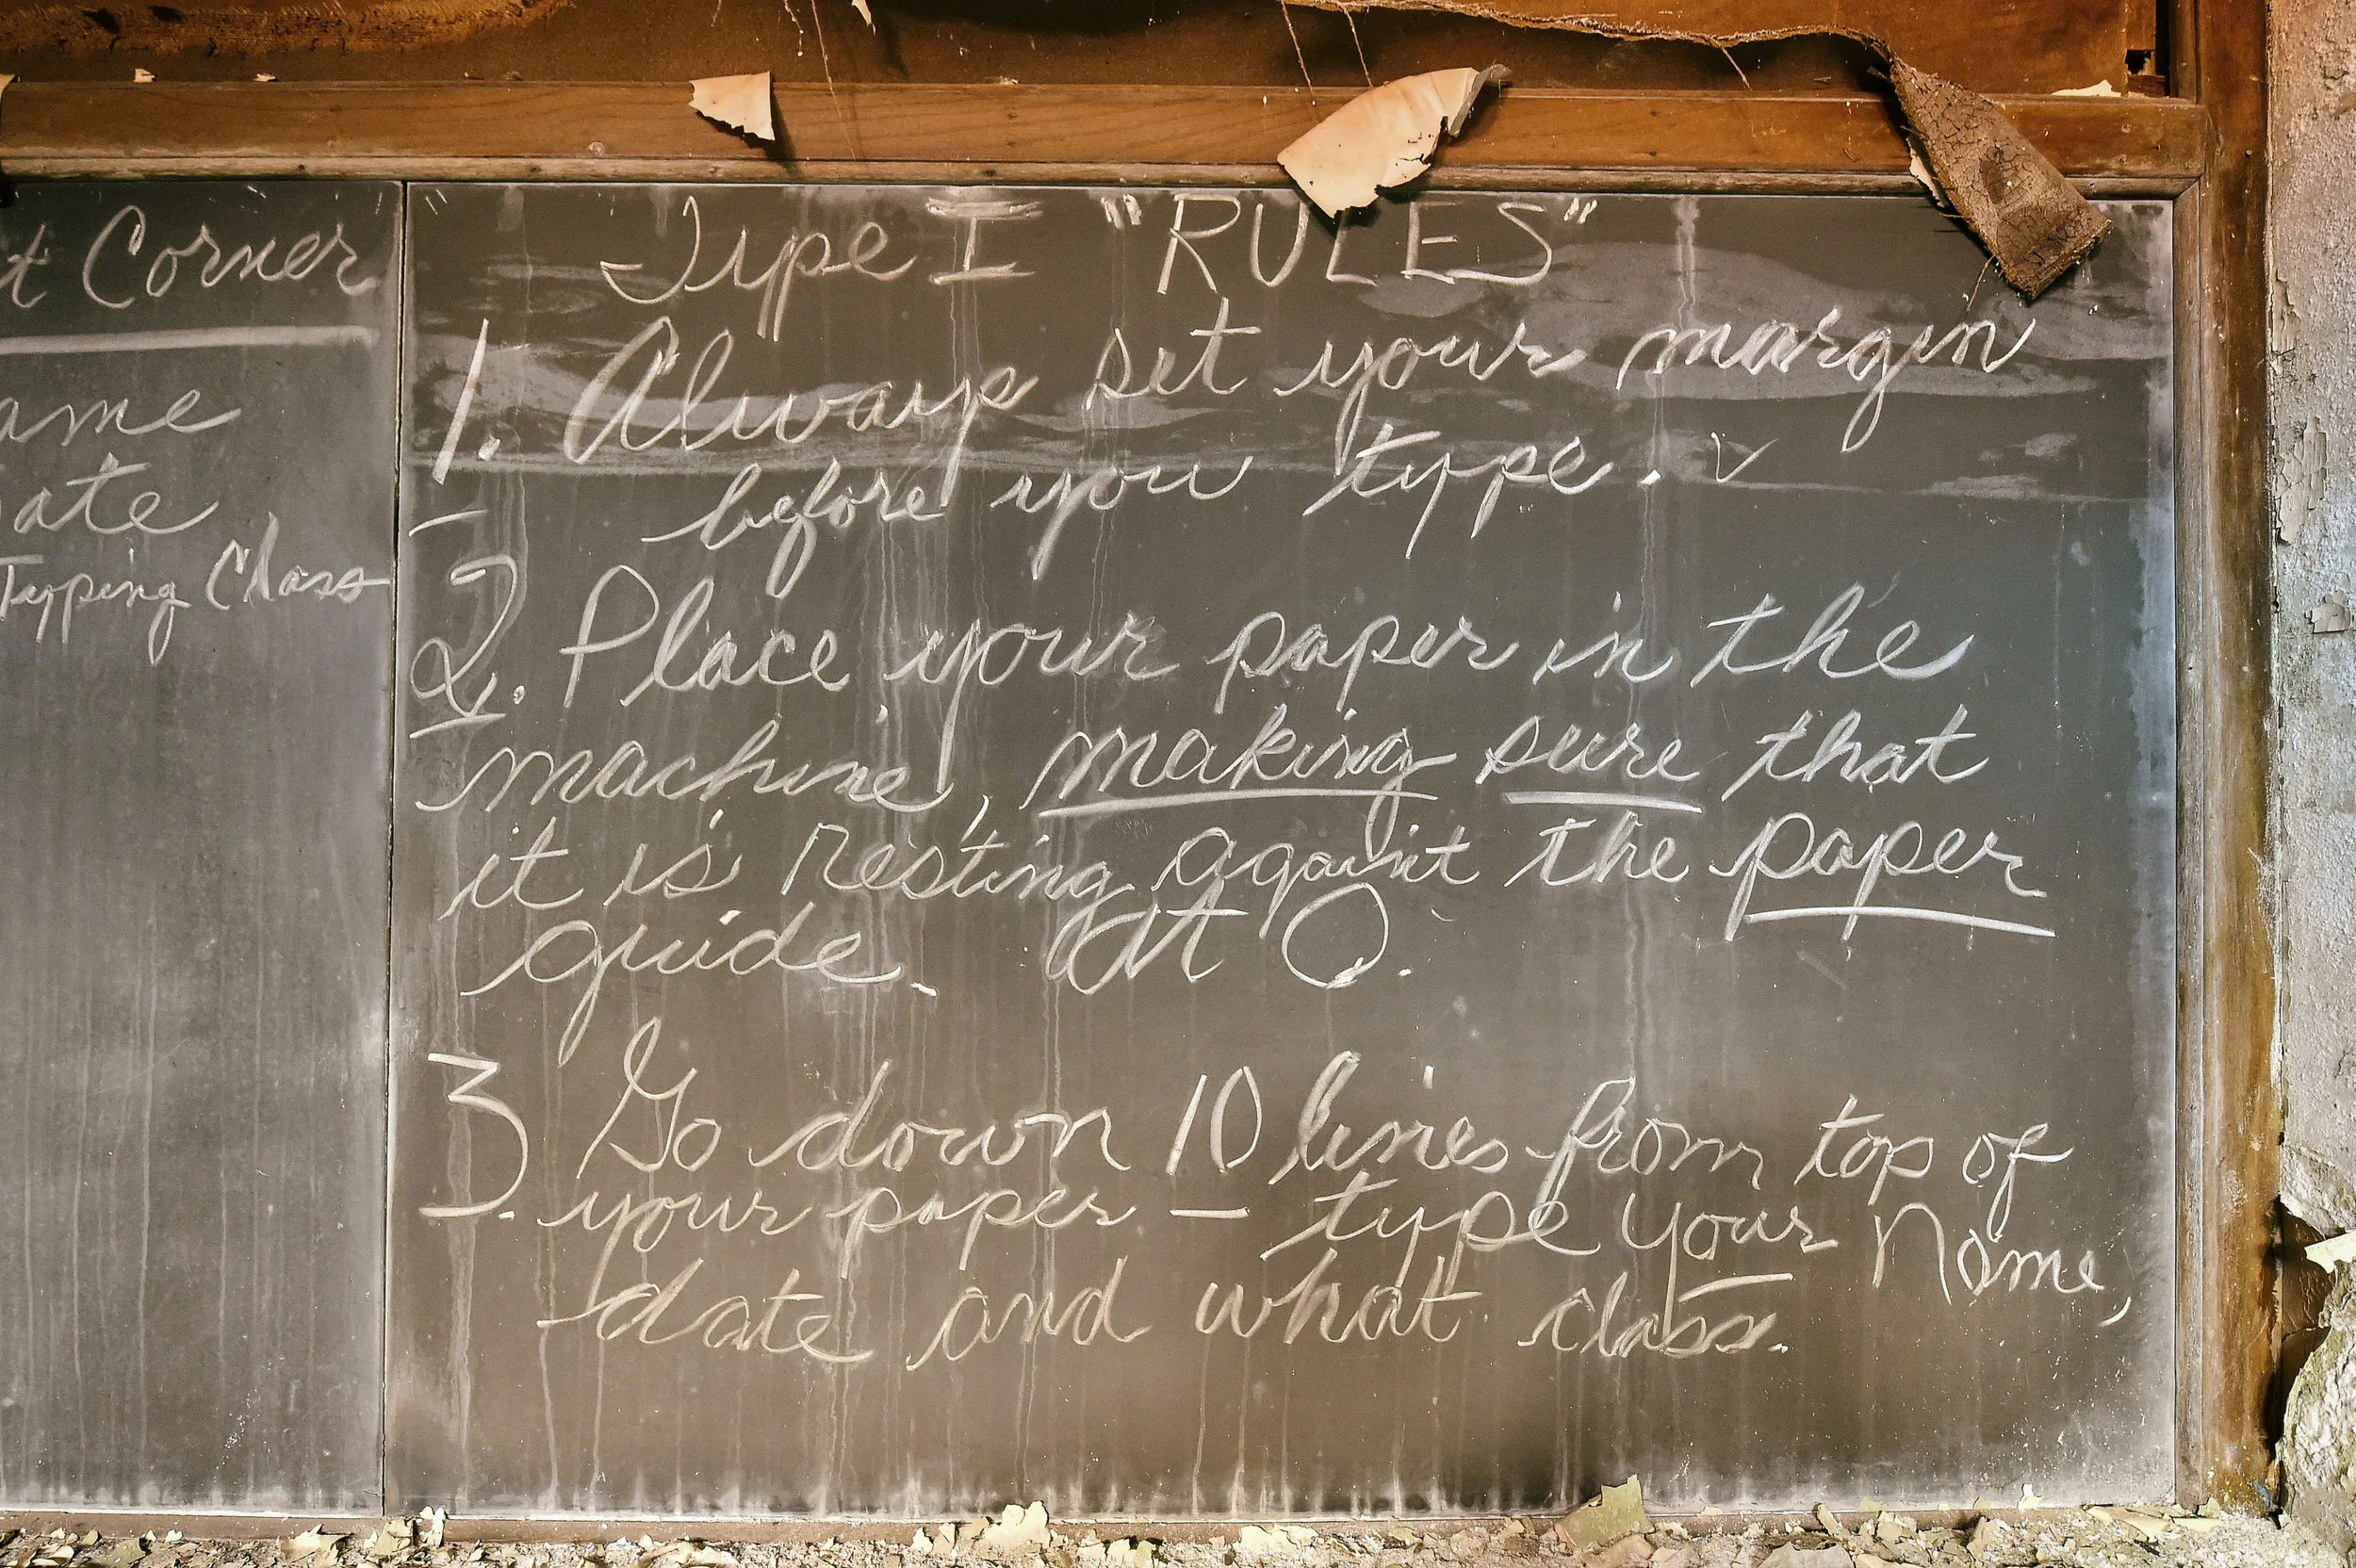 t Corner
ame
ate
Typing Class
Type I "RULES"
1. Always set your margin
before you type.
2. Place your paper in the
machine, making sure that
it is resting against the paper
guide. At 0.
3. Go down 10 lines from top of
your paper — type your Name,
date and what class.